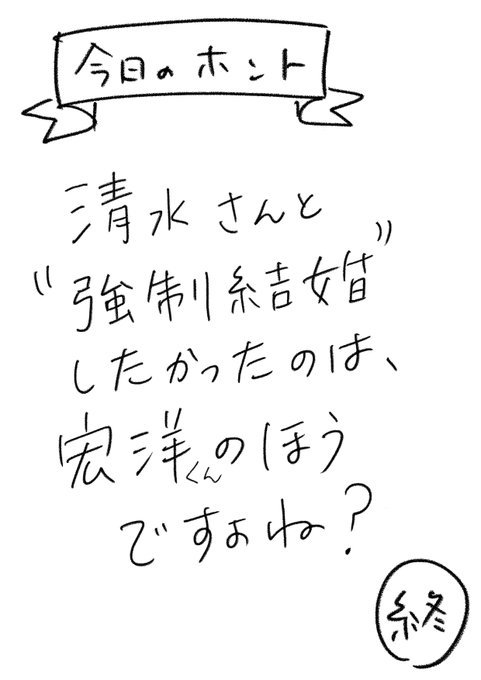 今日のホント
清水さんと
"強制結婚"
したかったのは、
宏洋くんのほう
ですよね?
終